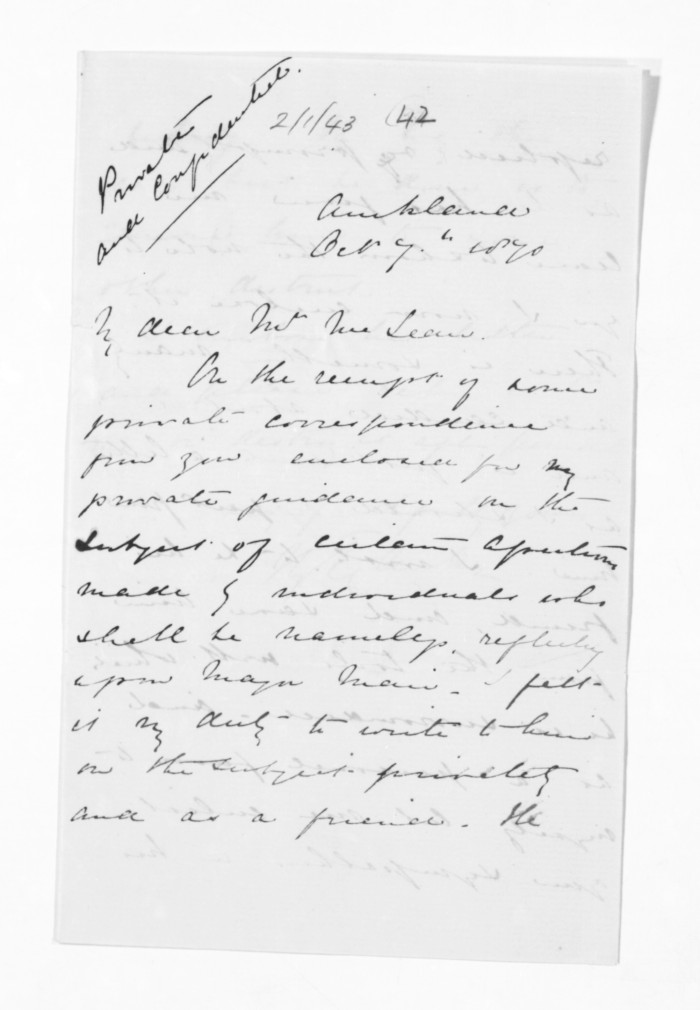 Private
and Confidential.
2/1/43 (42
Auckland
Oct 7th 1870
My dear Mr McLean.
On the receipt of some
private correspondence
from you enclosed for my
private guidance on the
subject of certain assertions
made by individuals who
shall be nameless, reflecting
upon Major Mair - I felt
it my duty to write to him
on the subject privately
and as a friend. He